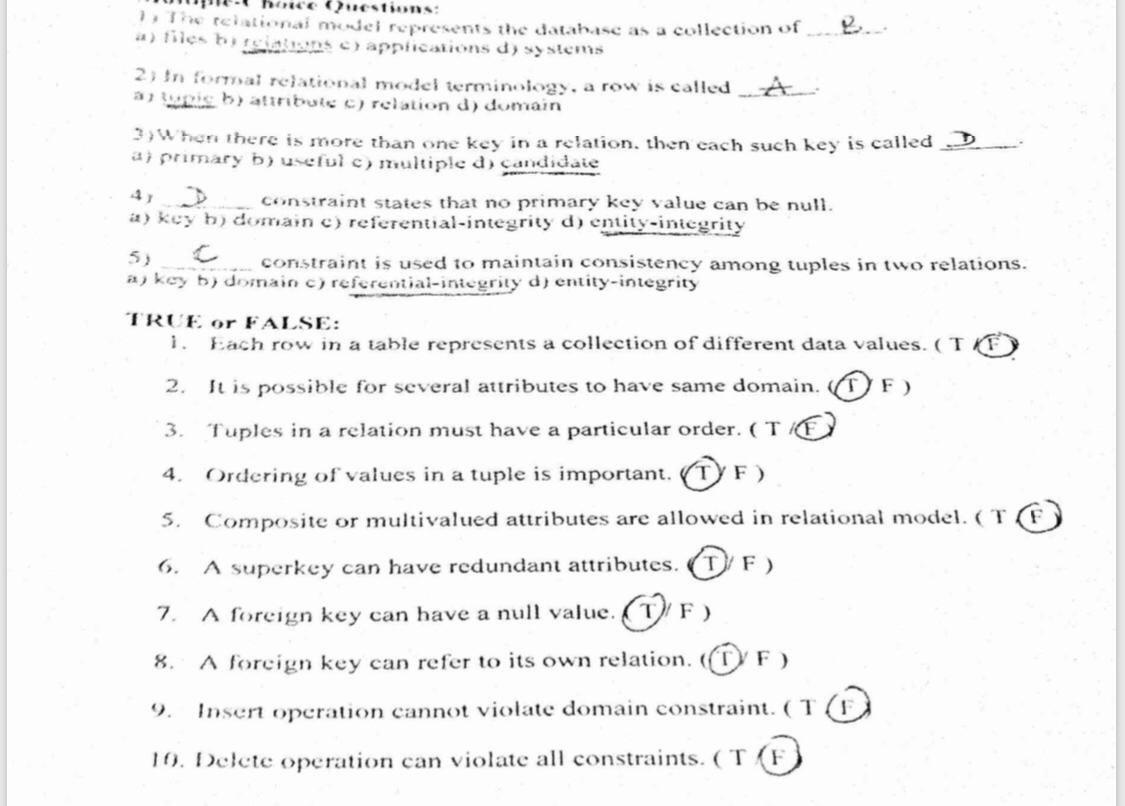 Multiple-Choice Questions:
1) The relational model represents the database as a collection of __B__.
a) files b) relations c) applications d) systems
2) In formal relational model terminology, a row is called __A__.
a) tuple b) attribute c) relation d) domain
3)When there is more than one key in a relation, then each such key is called __D__.
a) primary b) useful c) multiple d) candidate
4) __D__ constraint states that no primary key value can be null.
a) key b) domain c) referential-integrity d) entity-integrity
5) __C__ constraint is used to maintain consistency among tuples in two relations.
a) key b) domain c) referential-integrity d) entity-integrity
TRUE or FALSE:
1. Each row in a table represents a collection of different data values. ( T / F )
2. It is possible for several attributes to have same domain. ( T / F )
3. Tuples in a relation must have a particular order. ( T / F )
4. Ordering of values in a tuple is important. ( T / F )
5. Composite or multivalued attributes are allowed in relational model. ( T / F )
6. A superkey can have redundant attributes. ( T / F )
7. A foreign key can have a null value. ( T / F )
8. A foreign key can refer to its own relation. ( T / F )
9. Insert operation cannot violate domain constraint. ( T / F )
10. Delete operation can violate all constraints. ( T / F )